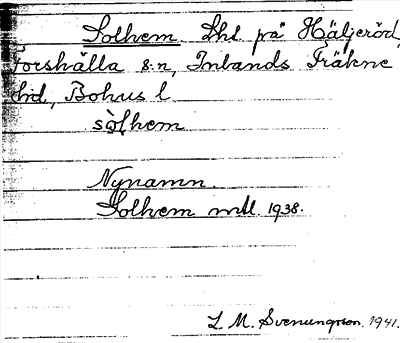 Solhem. Lht på Häljeröd,
Forshälla s:n, Inlands Fräkne
hd, Bohus l
sòlhem
Nynamn.
Solhem mtl. 1938.
L. M. Svenungsson. 1941.